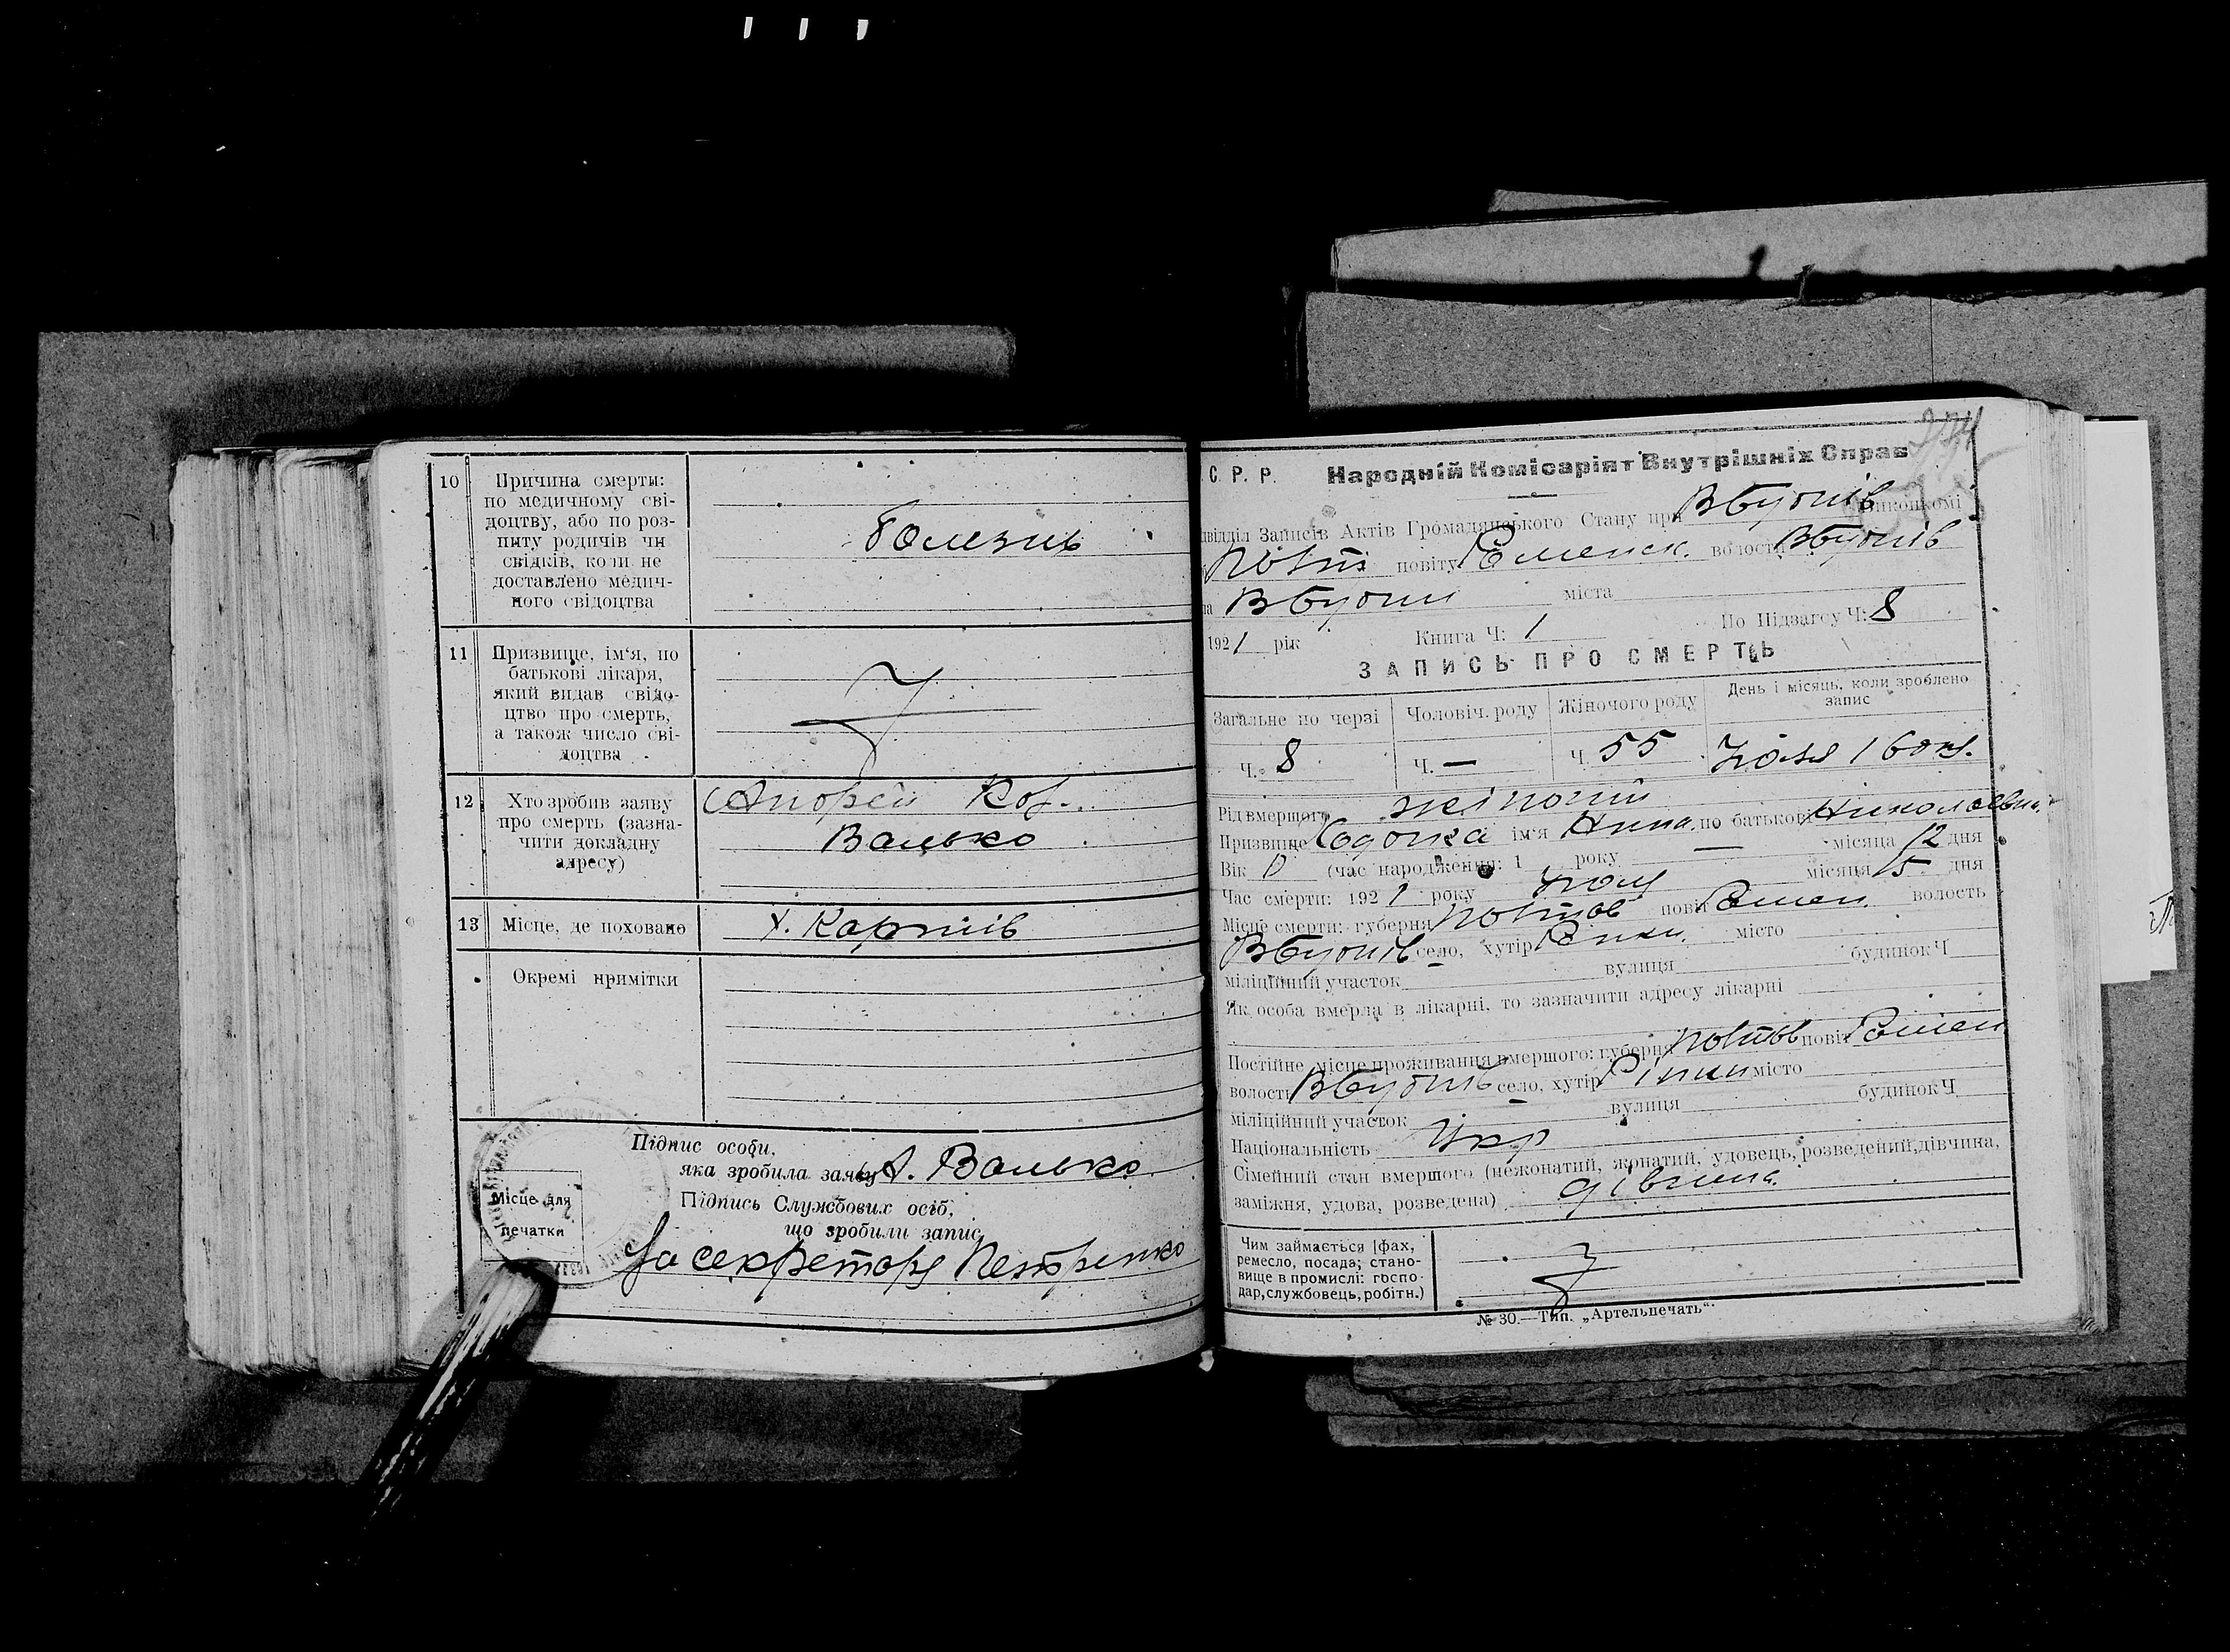 10 Причина смерти:
по медичному сві-
доцтву, або по роз-
питу родичів чи
свідків, коли не
доставлено медич-
ного свідоцтва
болезнь
11 Призвище, ім'я, по
батькові лікаря,
який видав свідо-
цтво про смерть,
а також число сві-
доцтва
12 Хто зробив заяву
про смерть (зазна-
чити докладну
адресу)
Андрей
Валько
13 Місце, де поховано
х.
Окремі примітки
Підпис особи,
яка зробила заяву А. Валько
Підпись Службових осіб,
що зробили запис
За секретаря Петренко
Місце для
печатки
С. Р. Р. Народній Комісаріят Внутрішніх Справ
відділ Записів Актів Громадянського Стану при виконкомі
повіту волости
міста
1921 рік Книга Ч: 1 По Підзагсу Ч: 8
ЗАПИСЬ ПРО СМЕРТЬ
Загальне по черзі Чоловіч. роду Жіночого роду День і місяць, коли зроблено
запис
Ч. 8 Ч. — Ч. 55
Рід вмершого жіночий
Призвище ім'я Нина по батькові Николаевна
Вік 0 (час народження: 1 року — місяця 12 дня
Час смерти: 1921 року місяця 15 дня
Місце смерти: губерня Полтав повіт Ромен. волость
село, хутір місто
міліційний участок вулиця будинок Ч
Як особа вмерла в лікарні, то зазначити адресу лікарні
Постійне місце проживання вмершого: губерня Полтав повіт Ромен
волость село, хутір місто
міліційний участок вулиця будинок Ч
Національність Укр
Сімейний стан вмершого (нежонатий, жонатий, удовець, розведений, дівчина,
заміжня, удова, розведена) дівчина
Чим займається [фах,
ремесло, посада; стано-
вище в промислі: госпо-
дар, службовець, робітн.)
№ 30.—Тип. „Артельпечать".